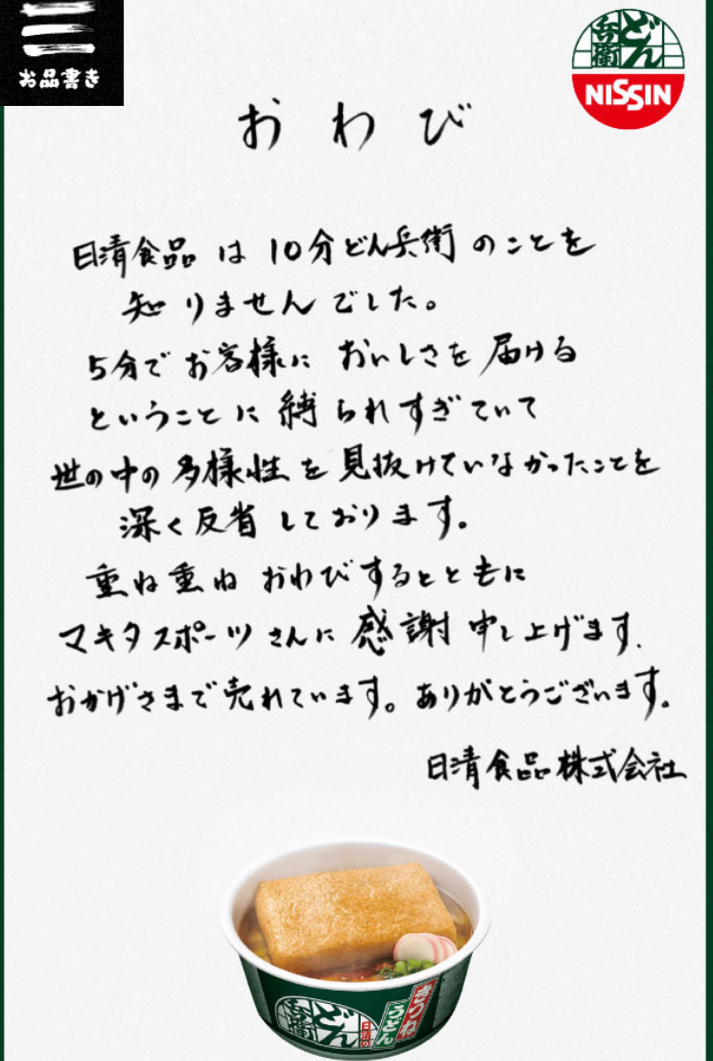 お品書き
どん兵衛
NISSIN
おわび
日清食品は10分どん兵衛のことを
知りませんでした。
5分でお客様においしさを届ける
ということに縛られすぎていて
世の中の多様性を見抜けていなかったことを
深く反省しております。
重ね重ねおわびするとともに
マキタスポーツさんに感謝申し上げます。
おかげさまで売れています。ありがとうございます。
日清食品株式会社
どん兵衛
日清の
きつね
うどん